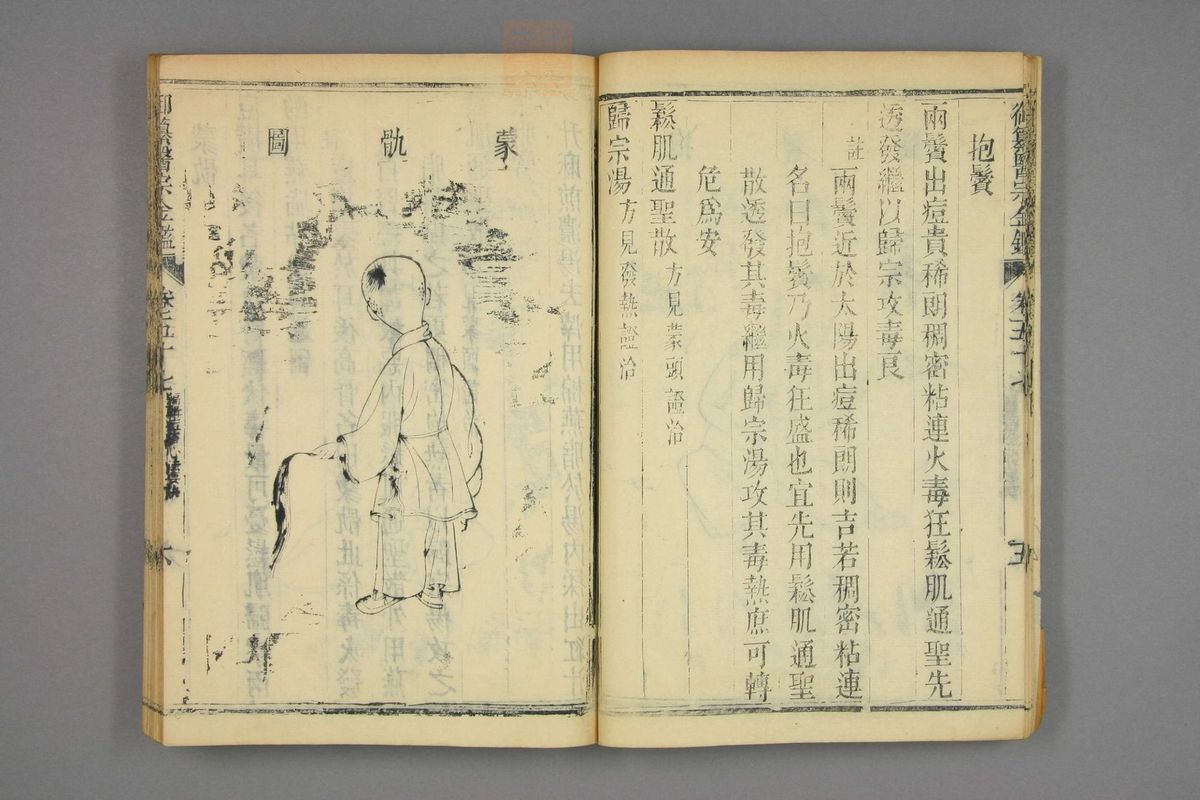 御纂醫宗金鑑 卷五十七 五
抱鬢
兩鬢出痘貴稀朗稠密粘連火毒狂鬆肌通聖先
透發繼以歸宗攻毒良
註 兩鬢近於太陽出痘稀朗則吉若稠密粘連
名曰抱鬢乃火毒狂盛也宜先用鬆肌通聖
散透發其毒繼用歸宗湯攻其毒熱庶可轉
危爲安
鬆肌通聖散 方見蒙頭證治
歸宗湯 方見發熱證治
蒙骩圖
御纂醫宗金鑑 卷五十七 六